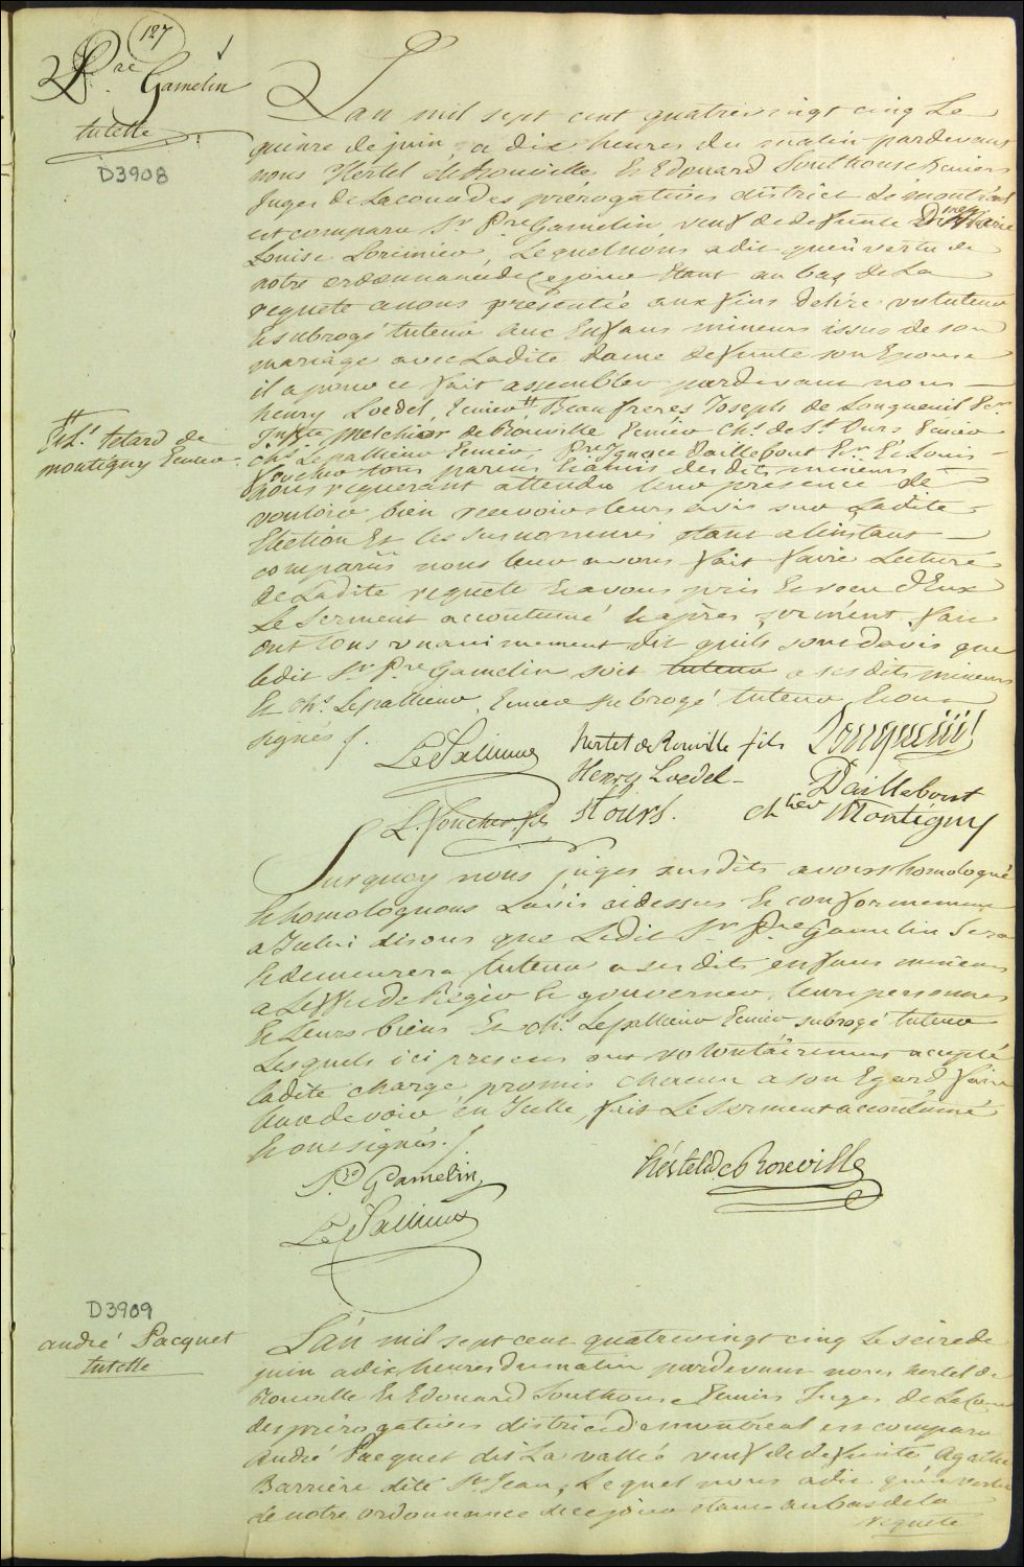 187
Pre Gamelin
tutelle
D3908
L'an mil sept cent quatrevingt cinq Le
quinze de juin, a dix heures du matin pardevant
nous Hertel de Rouville & Edouard Southouse Ecuiers
Juges de La cour des prérogatives district de montréal
est comparu Sr. Pre Gamelin, veuf de defunte Dme Marie
Louise Lorimier, Lequel nous a dit qu'en vertu de
notre ordonnance de ce jour Etant au bas de La
requete a nous présentée aux fins d'elire un tuteur
& subrogé tuteur aux Enfans mineurs issus de son
mariage avec Ladite dame defunte son Epouse
il a pour ce fait assembler pardevant nous
henry Loedel, Ecuier # Beaufreres Joseph de Longueuil Er.
# Chs. tetard de
montigny Ecuier
J. Bte Melchior de Rouville Ecuier Chs. de St. Ours Ecuier
Chs Lepallieur Ecuier, Pre Ignace Daillebout Er. & Louis
Foucher tous parens & amis desdits mineurs
nous requerant attendu leur presence de
vouloir bien recevoir leurs avis sur Ladite
Election Et les susnommés etant a l'instant
comparus nous leur avons fait faire Lecture
de Ladite requete & avons pris & reçu d'Eux
Le Serment accoutumé & après serment fait
ont tous unanimement dit quils sont d'avis que
ledit Sr. Pre Gamelin soit tuteur a ses dits mineurs
& Chs. Lepallieur, Ecuier subrogé tuteur & ont
signés /.
LePallieur
hertel de Rouville fils
Longueüil
Henry Loedel
Daillebout
L. Foucher
StOurs.
chlier Montigny
Surquoy nous juges susdits avons homologué
& homologuons L'avis cidessus & conformement
a Icelui disons que Ledit Sr. Pre Gamelin sera
& demeurera tuteur a ses dits enfans mineurs
a L'effet de Régir & gouverner, leurs personnes
& Leurs biens Et chs. Lepallieur Ecuier subrogé tuteur
Lesquels ici presens ont volontairement accepté
ladite charge promis chacun a son Egard faire
leur devoir en Icelle, fait Le Serment accoutumé
& ont signés. /
Pre Gamelin
hertel de Rouville
LePallieur
D3909
andré Pacquet
tutelle
L'an mil sept cent quatrevingt cinq le seize de
juin a dix heures du matin pardevant nous hertel de
Rouville & Edouard Southouse Ecuiers Juges de La Cour
des prérogatives district de montréal est comparu
André Pacquet dit La vallée veuf de defunte Agathe
Barrière dite St Jean, Lequel nous a dit qu'en vertu
de notre ordonnance de ce jour etant au bas de la
requete